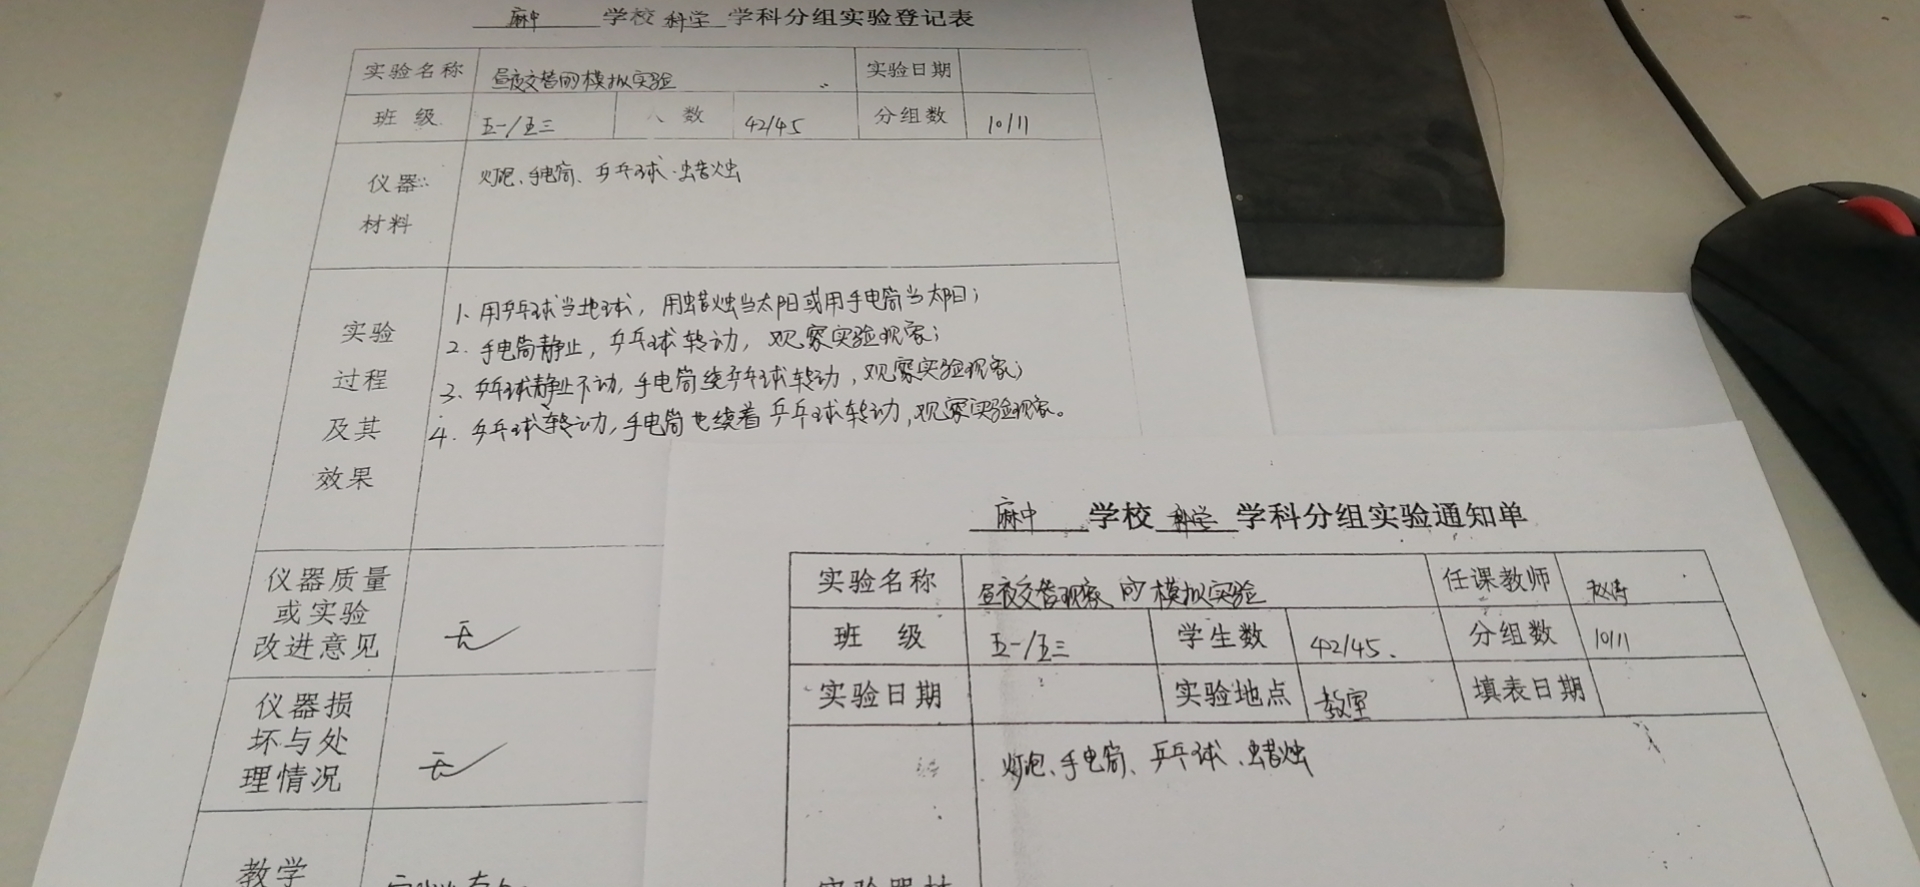 麻中 学校 科学 学科分组实验登记表
实验名称 昼夜交替的模拟实验 实验日期
班 级 五一/五三 人 数 42/45 分组数 10/11
仪器 材料 灯泡、手电筒、乒乓球、蜡烛
实验 过程 及其 效果
1、用乒乓球当地球，用蜡烛当太阳或用手电筒当太阳；
2、手电筒静止，乒乓球转动，观察实验现象；
3、乒乓球静止不动，手电筒绕乒乓球转动，观察实验现象；
4、乒乓球转动，手电筒也绕着乒乓球转动，观察实验现象。
仪器质量
或实验
改进意见 无
仪器损
坏与处
理情况 无
教学
麻中 学校 科学 学科分组实验通知单
实验名称 昼夜交替现象的模拟实验 任课教师
班 级 五一/五三 学生数 42/45. 分组数 10/11
实验日期 实验地点 教室 填表日期
灯泡、手电筒、乒乓球、蜡烛
实验器材